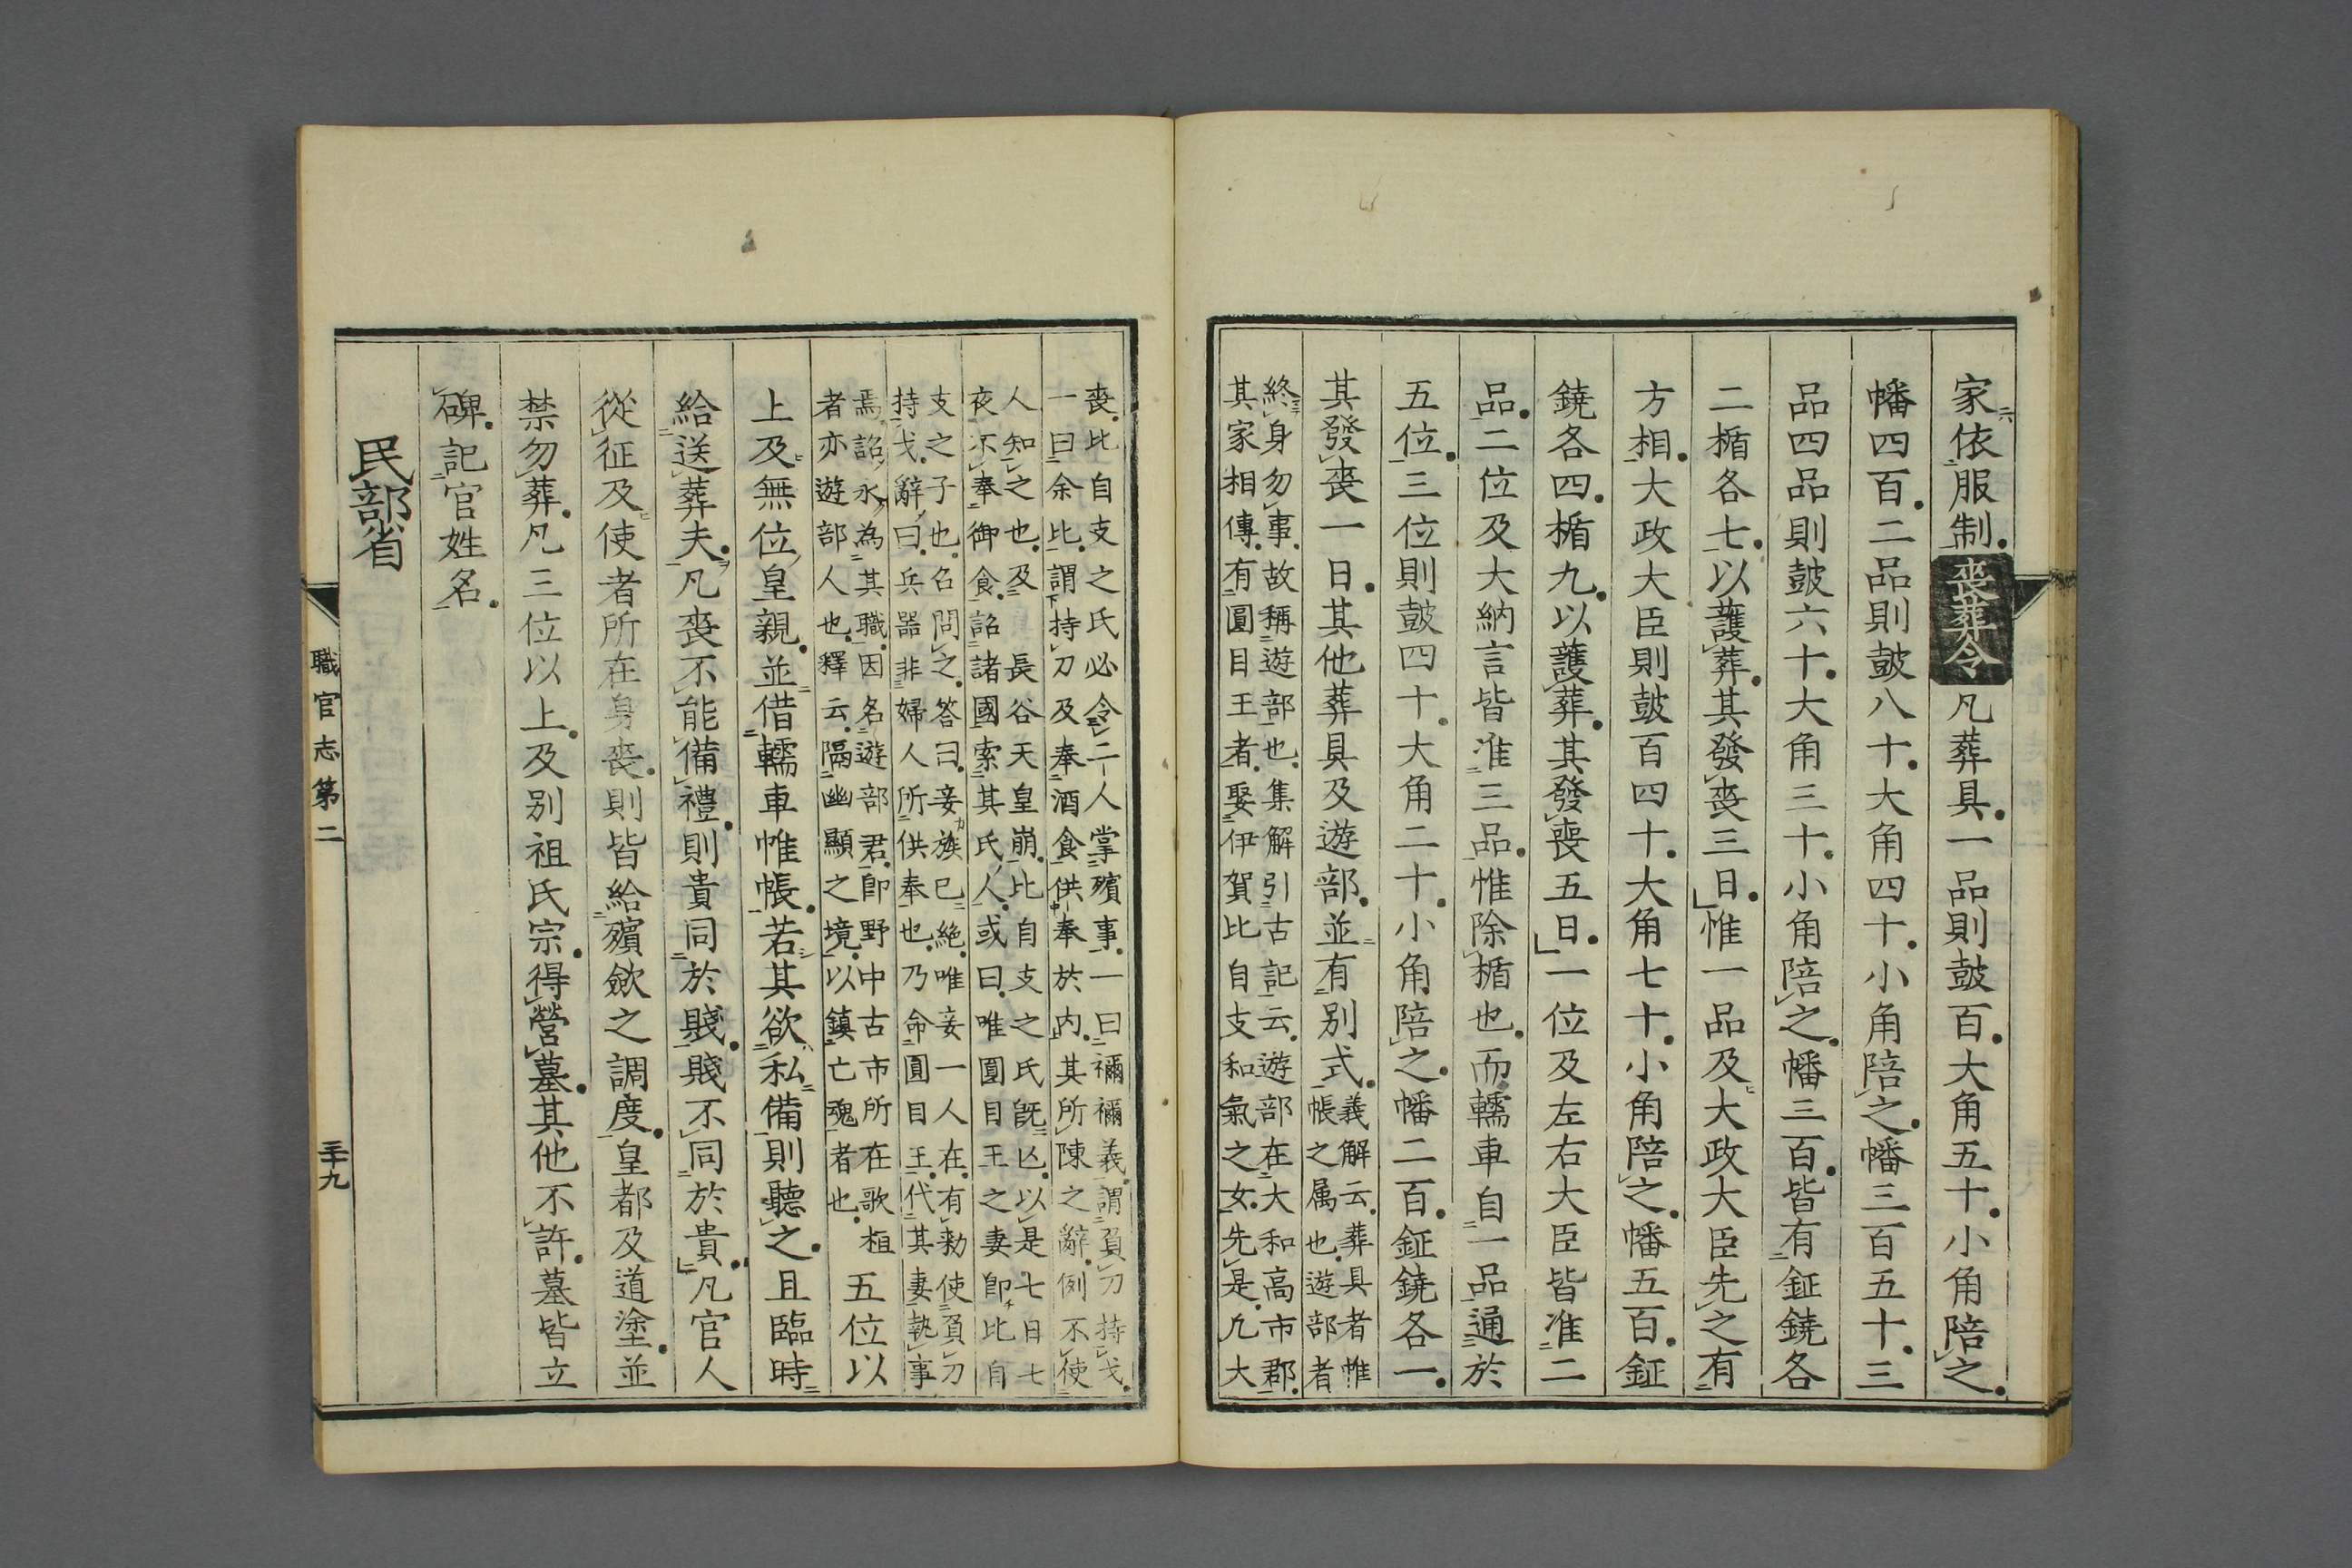 家依服制喪葬令凡葬具一品則鼓百大角五十小角陪之
幡四百二品則鼓八十大角四十小角陪之幡三百五十三
品四品則鼓六十大角三十小角陪之幡三百皆有鉦鐃各
二楯各七以護葬其發喪三日惟一品及大政大臣先之有
方相大政大臣則鼓百四十大角七十小角陪之幡五百鉦
鐃各四楯九以護葬其發喪五日一位及左右大臣皆准二
品二位及大納言皆准三品惟除楯也而轜車自一品通於
五位三位則鼓四十大角二十小角陪之幡二百鉦鐃各一
其發喪一日其他葬具及遊部並有別式
義解云葬具者帷
帳之属也遊部者
終身勿事故稱遊部也集解引古記云遊部在大和高市郡
其家相傳有圓目王者娶伊賀比自支和氣之女先是凡大
喪比自支之氏必令二人掌殯事一曰禰禰義謂負刀持戈
一曰余比謂持刀及奉酒食供奉於内其所陳之辭例不使
人知之也及長谷天皇崩比自支之氏既亡以是七日七
夜不奉御食詔諸國索其氏人或曰唯圓目王之妻即比自
支之子也召問之答曰妾族已絶唯妾一人在有勅使負刀
持戈辭曰兵器非婦人所供奉也乃命圓目王代其妻執事
焉詔永為其職因名遊部君即野中古市所在歌桓
者亦遊部人也釋云隔幽顯之境以鎮亡魂者也
五位以
上及無位皇親並借轜車帷帳若其欲私備則聽之且臨時
給送葬夫凡喪不能備禮則貴同於賤賤不同於貴凡官人
從征及使者所在身喪則皆給殯歛之調度皇都及道塗並
禁勿葬凡三位以上及別祖氏宗得營墓其他不許墓皆立
碑記官姓名
民部省
職官志第二
三十九